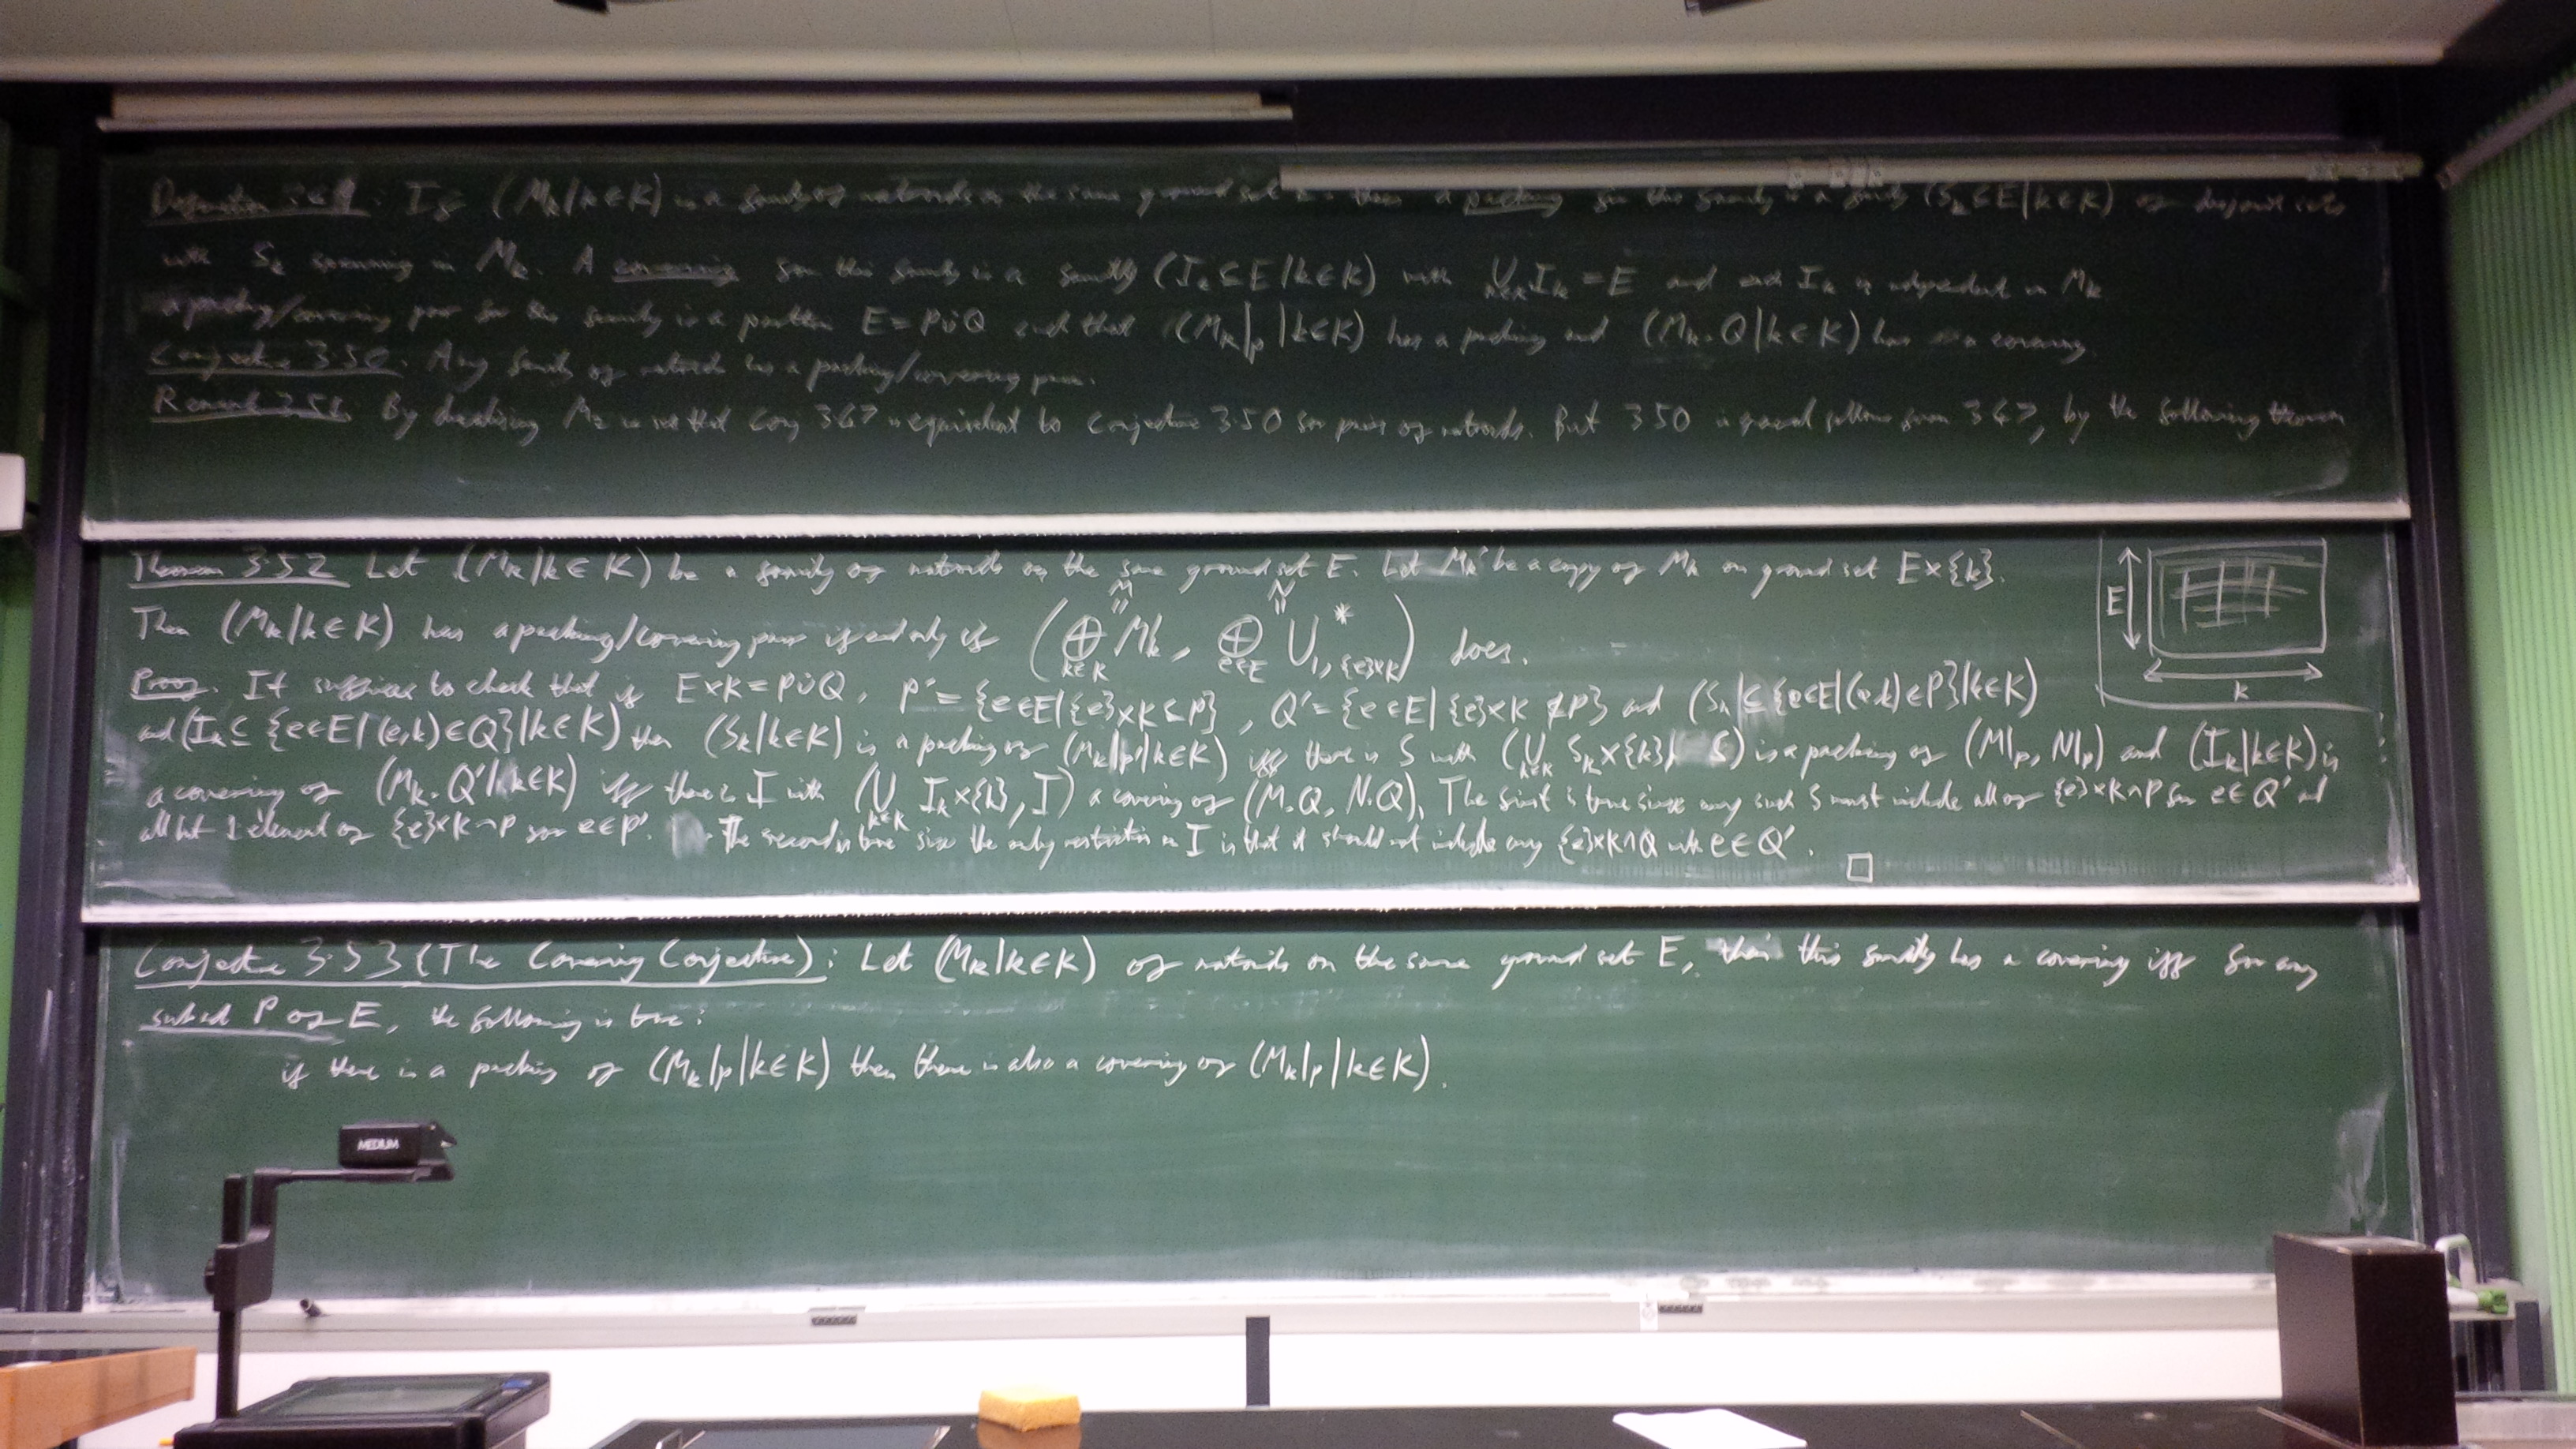 Definition : If (M_k | k ∈ K) is a family of matroids on the same ground set E then a packing for this family is a family (S_k ⊆ E | k ∈ K) of disjoint sets
with S_k spanning in M_k. A covering for this family is a family (I_k ⊆ E | k ∈ K) with ⋃_{k∈K} I_k = E and each I_k is independent in M_k
a packing/covering pair for the family is a partition E = P ∪̇ Q such that (M_k|_P | k ∈ K) has a packing and (M_k.Q | k ∈ K) has a covering.
Conjecture 3.50. Any family of matroids has a packing/covering pair.
Remark 3.51. By dualising M_2 we see that Conj 3.47 is equivalent to Conjecture 3.50 for pairs of matroids. But 3.50 in general follows from 3.47, by the following theorem
Theorem 3.52 Let (M_k | k ∈ K) be a family of matroids on the same ground set E. Let M_k' be a copy of M_k on ground set E×{k}.
M N
Then (M_k | k ∈ K) has a packing/covering pair if and only if (⊕_{k∈K} M_k', ⊕_{e∈E} U*_{1,{e}×K}) does.
E
K
Proof. It suffices to check that if E×K = P ∪̇ Q, P' = {e∈E | {e}×K ⊆ P}, Q' = {e∈E | {e}×K ⊈ P} and (S_k ⊆ {e∈E | (e,k) ∈ P} | k∈K)
and (I_k ⊆ {e∈E | (e,k) ∈ Q} | k∈K) then (S_k | k∈K) is a packing of (M_k|_P' | k∈K) iff there is S with (⋃_{k∈K} S_k×{k}, S) is a packing of (M|_P, N|_P) and (I_k | k∈K) is
a covering of (M_k.Q' | k∈K) iff there is I with (⋃_{k∈K} I_k×{k}, I) a covering of (M.Q, N.Q). The first is true since any such S must include all of {e}×K∩P for e∈Q' and
all but 1 element of {e}×K∩P for e∈P'. The second is true since the only restriction on I is that it should not include any {e}×K∩Q with e∈Q'. □
Conjecture 3.53 (The Covering Conjecture): Let (M_k | k∈K) of matroids on the same ground set E, then this family has a covering iff for any
subset P of E, the following is true:
if there is a packing of (M_k|_P | k∈K) then there is also a covering of (M_k|_P | k∈K).
MEDIUM